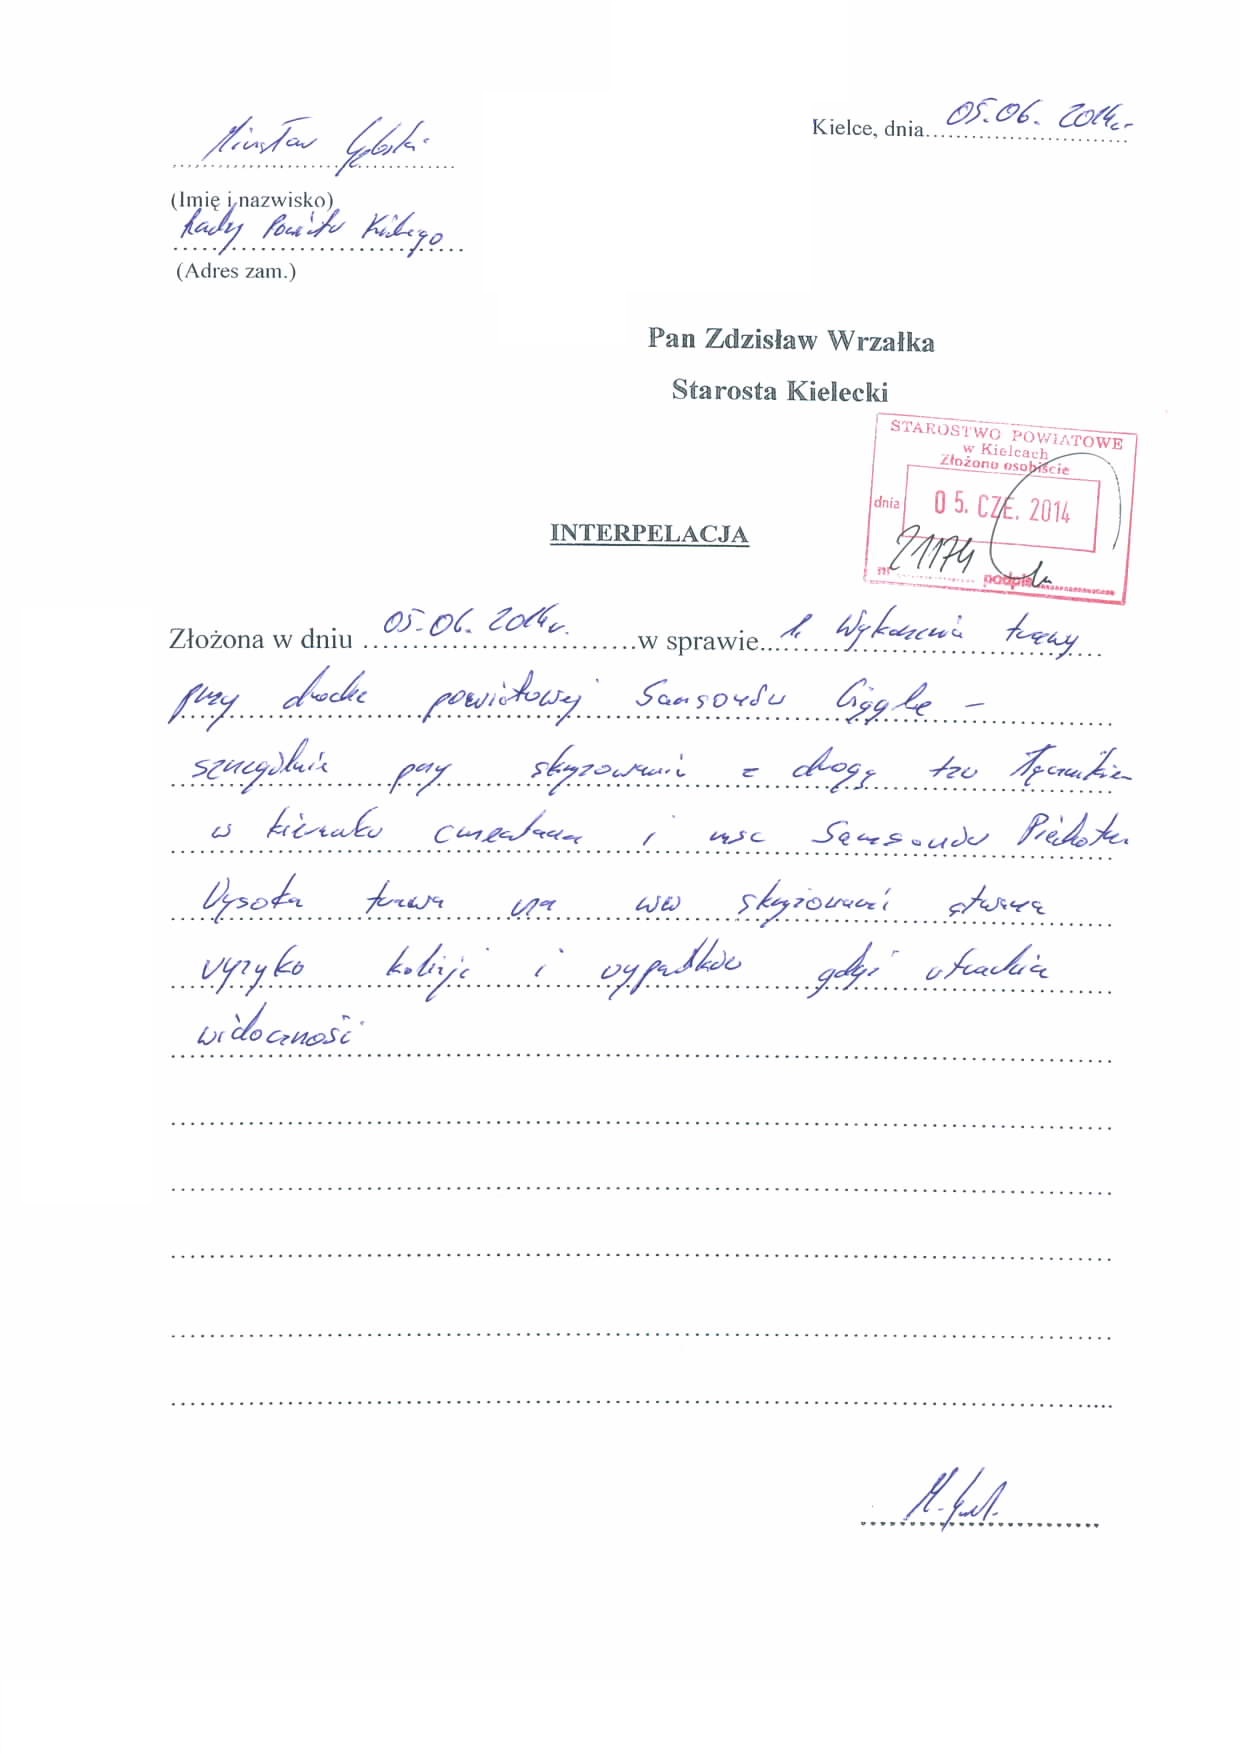 Kielce, dnia 05.06.2014r.
Mirosław Gębski
(Imię i nazwisko)
Rady Powiatu
(Adres zam.)
Pan Zdzisław Wrzałka
Starosta Kielecki
STAROSTWO POWIATOWE
w Kielcach
Złożono osobiście
dnia 05. CZE. 2014
nr 21174 podpis
INTERPELACJA
Złożona w dniu 05.06.2014r. w sprawie 1. Wykoszenia trawy
przy drodze powiatowej Samsonów Ciągłe -
szczególnie przy skrzyżowaniu z drogą tzw Łącznikiem
w kierunku cmentarza i msc Samsonów Piechotne
Wysoka trawa na ww skrzyżowaniu stwarza
ryzyko kolizji i wypadków gdyż utrudnia
widoczność